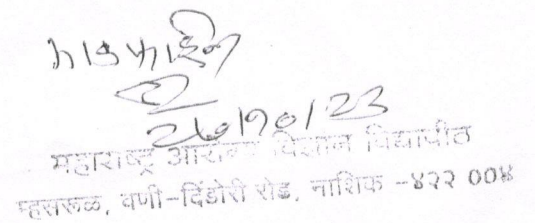 26/10/23
महाराष्ट्र आरोग्य विज्ञान विद्यापीठ
म्हसरूळ, वणी-दिंडोरी रोड, नाशिक -४२२ 00४